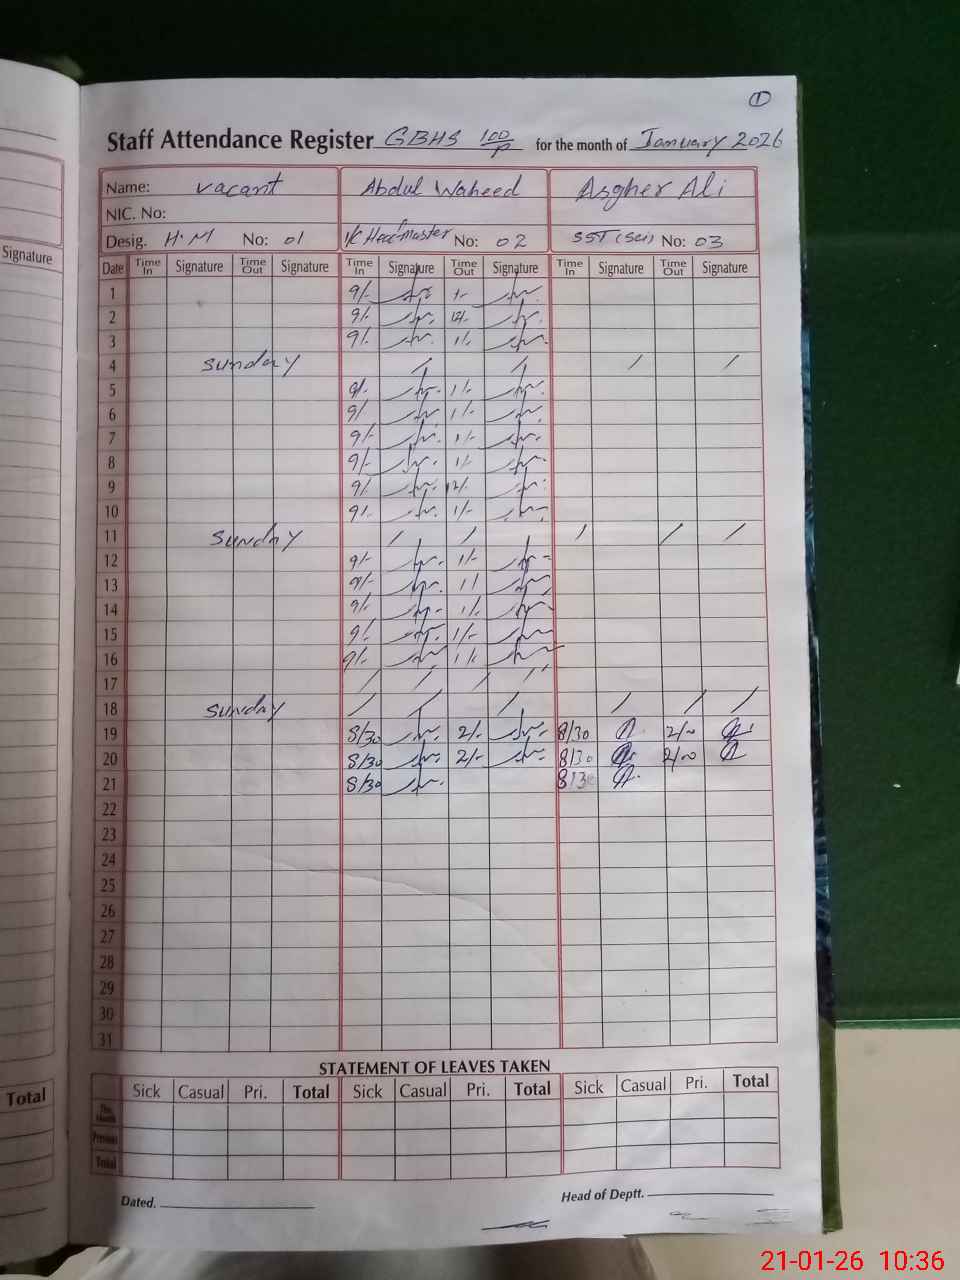 ①
Staff Attendance Register GBHS 100/P for the month of January 2026
Name: vacant Abdul Waheed Asgher Ali
NIC. No:
Desig. H.M No: 01 I/C Headmaster No: 02 SST (Sci) No: 03
Signature
Date Time In Signature Time Out Signature Time In Signature Time Out Signature Time In Signature Time Out Signature
1 9/- 1-
2 9/- 12/-
3 9/- 1/-
4 Sunday
5 9/- 1/-
6 9/ 1/-
7 9/- 1/-
8 9/- 1/-
9 9/- 12/-
10 9/- 1/-
11 Sunday
12 9/- 1/-
13 9/- 1/
14 9/- 1/-
15 9/- 1/-
16 9/- 1/-
17
18 Sunday
19 8/30 2/- 8/30 2/00
20 8/30 2/- 8/30 2/00
21 8/30 8/30
22
23
24
25
26
27
28
29
30
31
STATEMENT OF LEAVES TAKEN
Sick Casual Pri. Total Sick Casual Pri. Total Sick Casual Pri. Total
Total
This Month
Previous
Total
Dated. Head of Deptt.
21-01-26 10:36